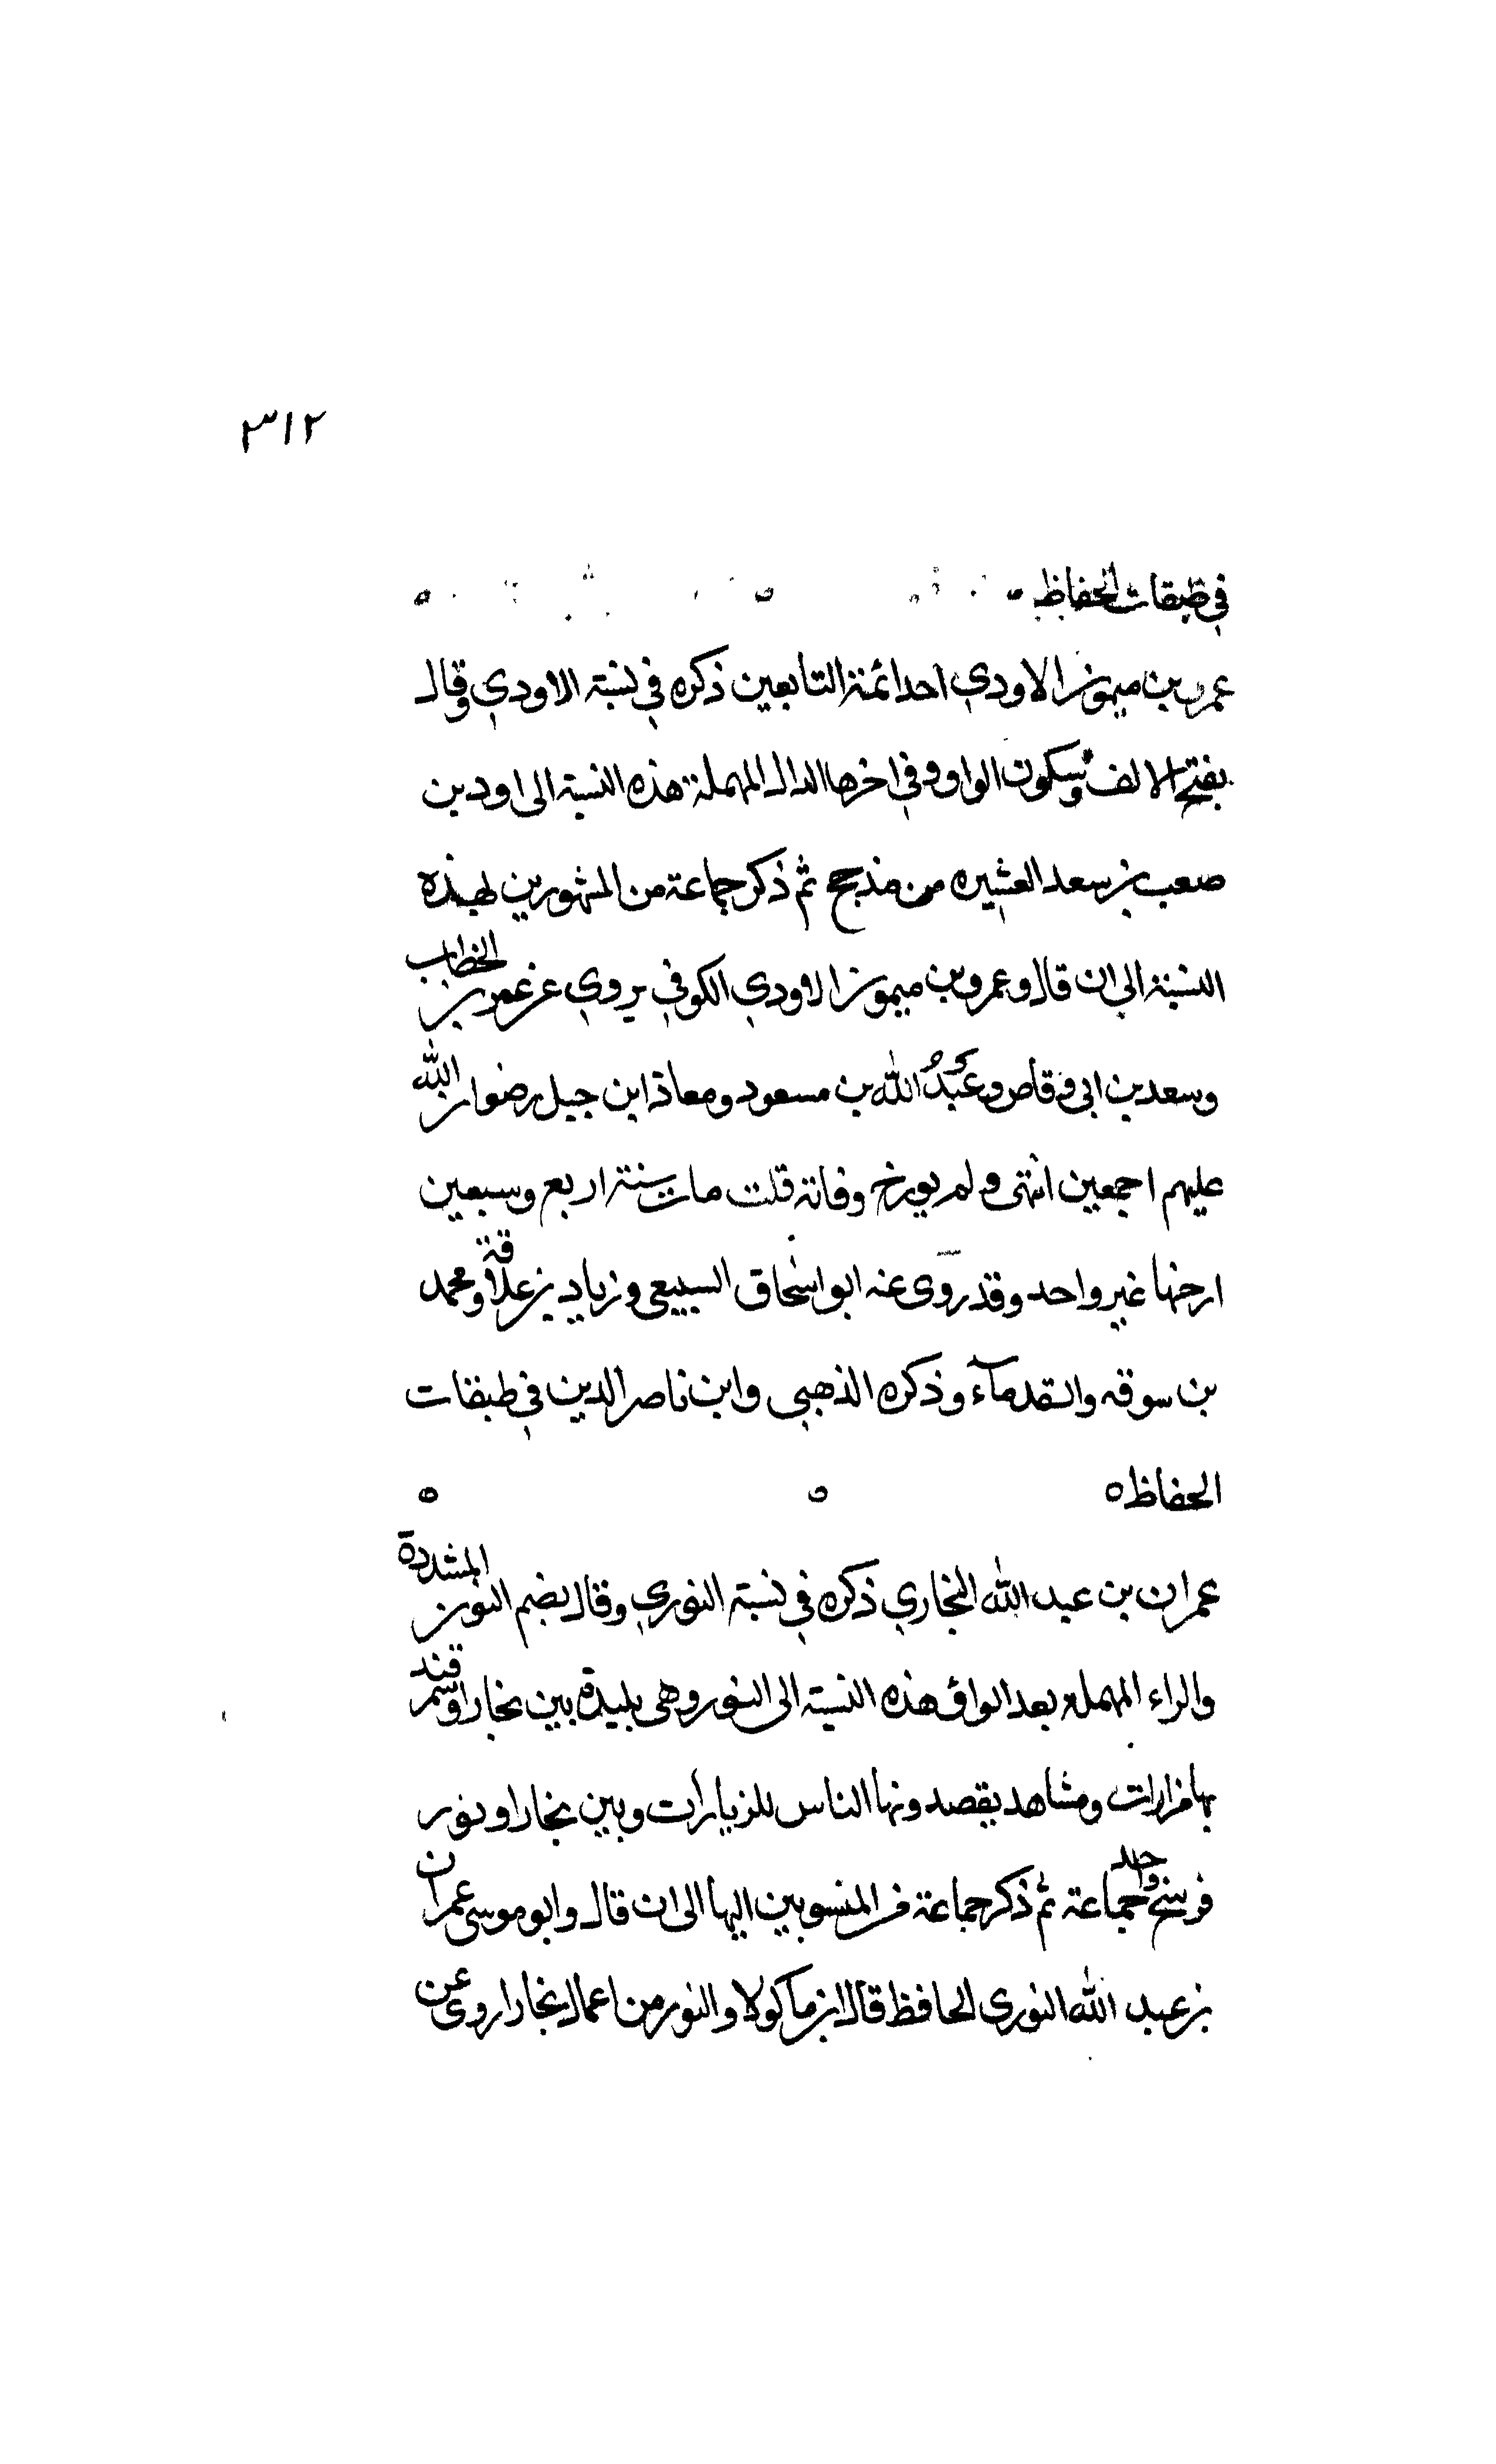 ٣١٢
في طبقات الحفاظ ه ه ه
عمرو بن ميمون الاودي احد ائمة التابعين ذكره في نسبة الاودي وقال
بفتح الالف وسكون الواو وفي اخرها الدال المهملة هذه النسبة الى اود بن
صعب بن سعد العشيره من مذحج ثم ذكر جماعة من المشهورين بهذه
النسبة الى ان قال وعمرو بن ميمون الاودي الكوفي يروي عن عمر بن الخطاب
وسعد بن ابي وقاص وعبد الله بن مسعود ومعاذ ابن جبل رضوان الله
عليهم اجمعين انتهى ولم يورخ وفاته قلت مات سنة اربع وسبعين
ارخها غير واحد وقد روى عنه ابو اسحاق السبيعي وزياد بن علاقة ومحمد
بن سوقه والقدماء وذكره الذهبي وابن ناصر الدين في طبقات
الحفاظ ه ه ه
عمران بن عبد الله البخاري ذكره في نسبة النوري وقال بضم النون المشددة
والراء المهملة بعد الواو هذه النسبة الى النور وهي بليدة بين بخارا وسمرقند
بها مزارات ومشاهد يقصدونها الناس للزيارات وبين بخارا ونور
فرسخ واحد جماعة ثم ذكر جماعة من المنسوبين اليها الى ان قال وابو موسى عمران
بن عبد الله النوري الحافظ قال ابن ماكولا والنور من اعمال بخارا روى عن